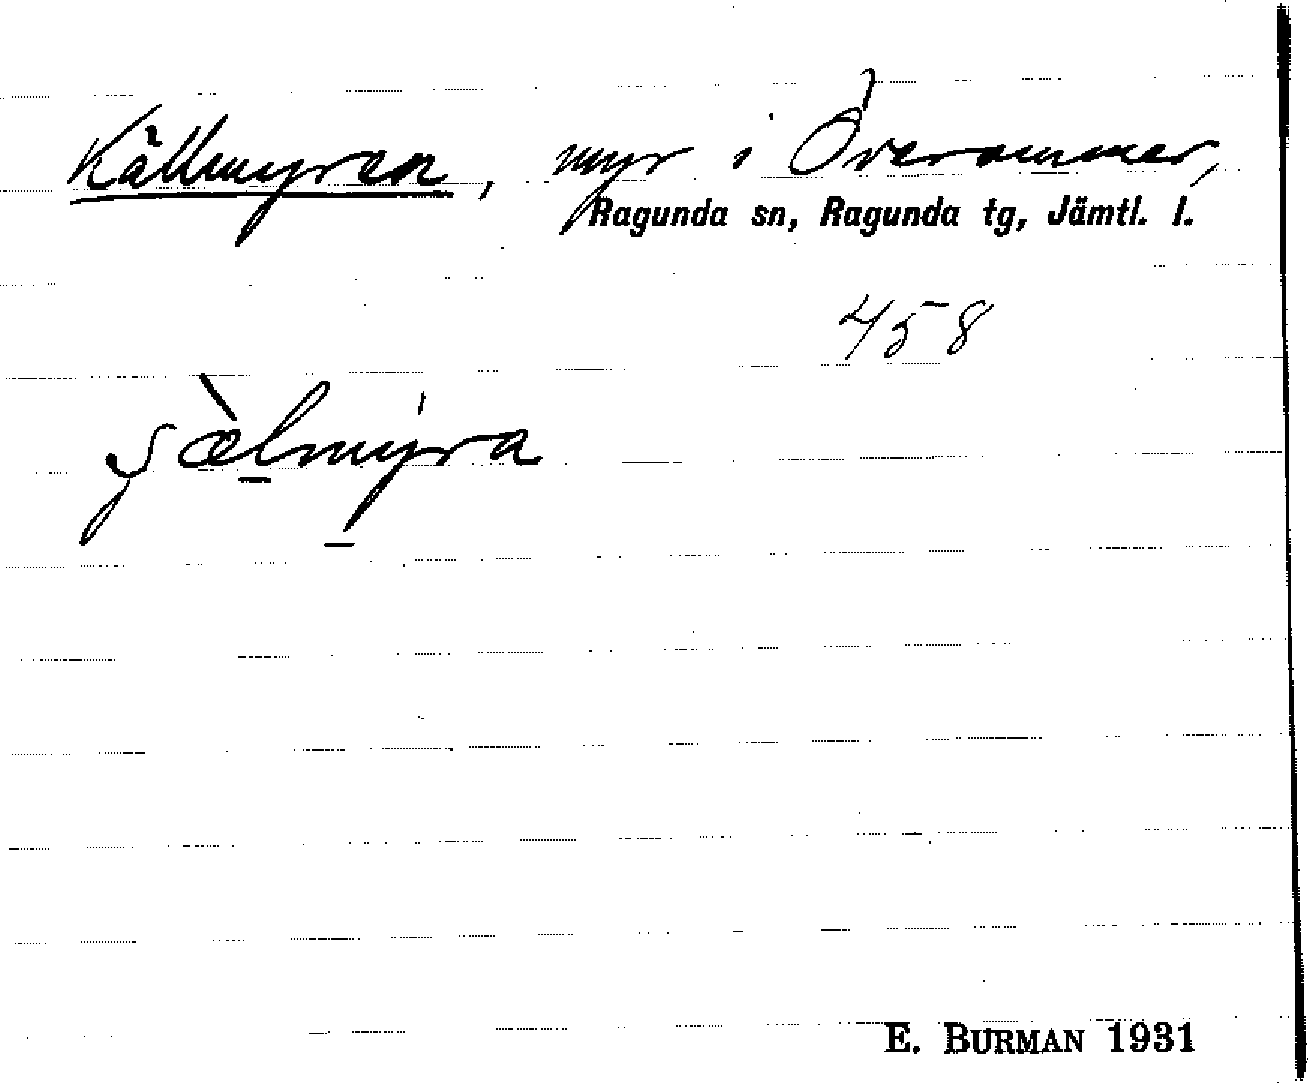 Källmyren, myr i Överammer,
Ragunda sn, Ragunda tg, Jämtl. l.
458
E. BURMAN 1931